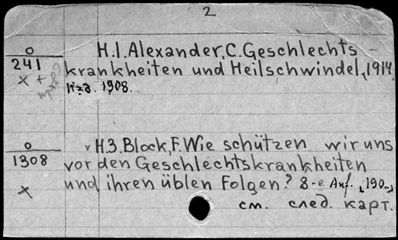 2
O
241
H.I. Alexander, C. Geschlechts-
krankheiten und Heilschwindel, 1914.
Изд. 1908.
O
1308
H.3. Block, F. Wie schützen wir uns
vor den Geschlechtskrankheiten
und ihren üblen Folgen? 8-e Auf. [190..]
см. след. карт.